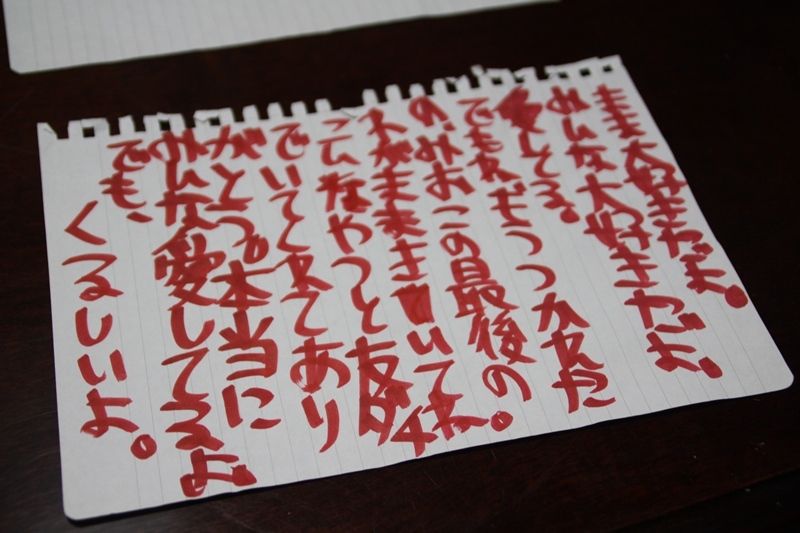 まま大好きだよ。
みんな大好きだよ。
愛してる。
でもねもうつかれた
の。みおこの最後の。
わがままきいてね。
こんなやつと友ダチ
でいてくれてあり
がとう。本当に
みんな愛してるよ
でも、
くるしいよ。